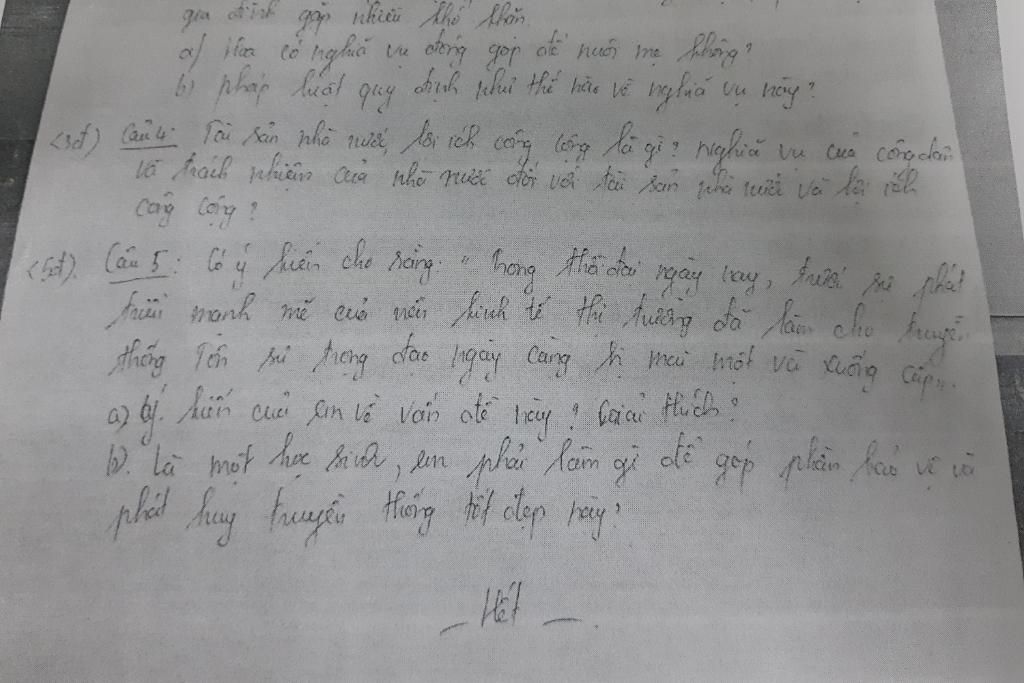 gia đình gặp nhiều khó khăn.
a) Hoa có nghĩa vụ đóng góp để nuôi mẹ không?
b) pháp luật quy định như thế nào về nghĩa vụ này?
<3đ) Câu 4: Tài sản nhà nước, lợi ích công cộng là gì? nghĩa vụ của công dân
và trách nhiệm của nhà nước đối với tài sản nhà nước và lợi ích
công cộng?
<5đ). Câu 5: Có ý kiến cho rằng. " Trong thời đại ngày nay, trước sự phát
triển mạnh mẽ của nền kinh tế thị trường đã làm cho truyền
thống Tôn sư trọng đạo ngày càng bị mai một và xuống cấp".
a) Ý kiến của em về vấn đề này? Giải thích?
b). Là một học sinh, em phải làm gì để góp phần bảo vệ và
phát huy truyền thống tốt đẹp này?
_ Hết _.